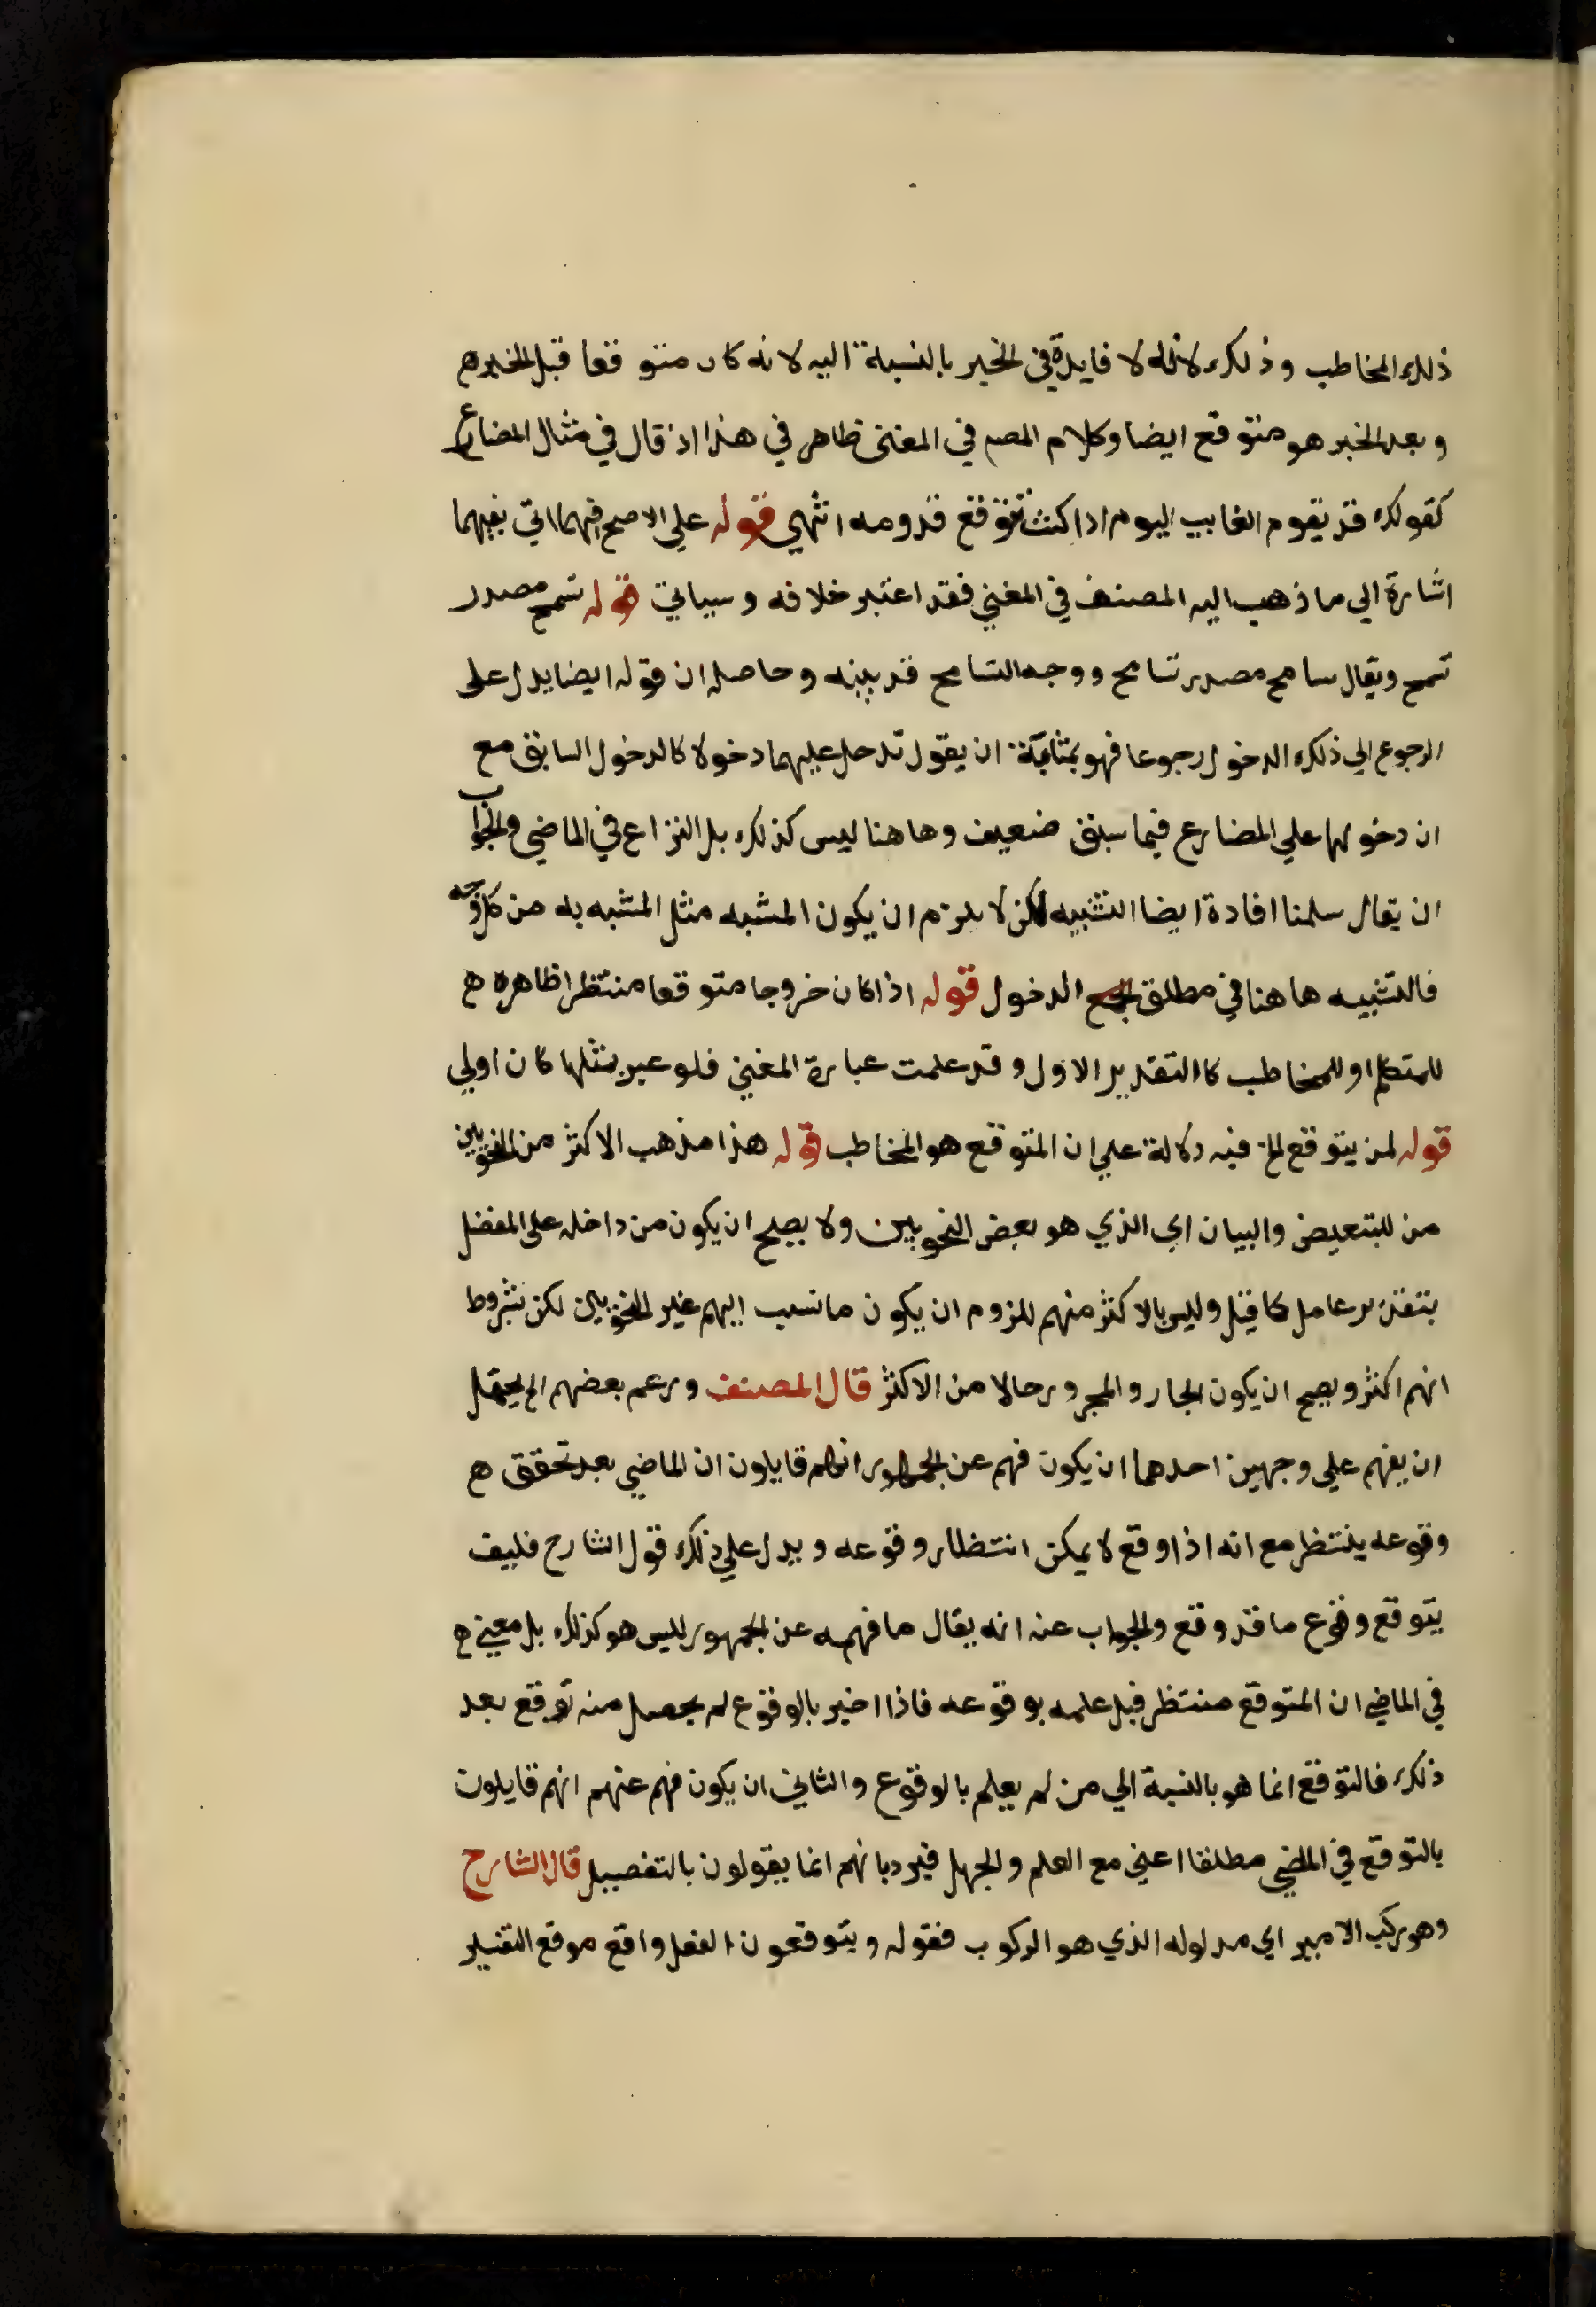 ذلك المخاطب وذلك لانه لا فايدة في الخبر بالنسبة اليه لانه كان متوقعا قبل الخبر ه
وبعد الخبر هو متوقع ايضا وكلام المص في المغنى ظاهر في هذا اذ قال في مثال المضارع
كقولك قد يقوم الغايب اليوم اذا كنت تتوقع قدومه انتهي قوله علي الاصح فيهما اتي بفيهما
اشارة الي ما ذهب اليه المصنف في المغني فقد اعتبر خلافه وسياتي قوله تسمح مصدر
تسمح ويقال سامح مصدر تسامح ووجه التسامح قد بينه وحاصله ان قوله ايضا يدل على
الرجوع الي ذلك الدخول رجوعا فهو بمثابة ان يقول تدخل عليهما دخولا كالدخول السابق مع
ان دخولها علي المضارع فيما سبق ضعيف وهاهنا ليس كذلك بل النزاع في الماضي والجواب
ان يقال سلمنا افادة ايضا التشبيه لكن لا يلزم ان يكون المشبه مثل المشبه به من كل وجه
فالتشبيه هاهنا في مطلق الدخول قوله اذا كان خروجا متوقعا منتظرا ظاهره ه
للمتكلم او للمخاطب كالتقدير الاول وقد علمت عبارة المغني فلو عبر بمثلها كان اولي
قوله لمن يتوقع الخ فيه دلالة علي ان المتوقع هو المخاطب قوله هذا مذهب الاكثر من النحويين
من للتبعيض والبيان اي الذي هو بعض النحويين ولا يصلح ان يكون من داخله على المفضل
بتقدير عامل كما قيل وليس بالاكثر منهم للزوم ان يكون ما نسب اليهم غير النحويين لكن بشروط
انهم اكثر ويصح ان يكون الجار والمجرور حالا من الاكثر قال المصنف وزعم بعضهم الخ يحتمل
ان يفهم علي وجهين احدهما ان يكون فهم عن الجمهور انهم قايلون ان الماضي بعد تحقق ه
وقوعه ينتظر مع انه اذا وقع لا يمكن انتظار وقوعه ويدل علي ذلك قول الشارح فكيف
يتوقع وقوع ما قد وقع والجواب عنه انه يقال ما فهمه عن الجمهور ليس هو كذلك بل معني ه
في الماضي ان المتوقع منتظر قبل علمه بوقوعه فاذا اخبر بالوقوع لم يحصل منه توقع بعد
ذلك فالتوقع انما هو بالنسبة الي من لم يعلم بالوقوع والثاني ان يكون فهم عنهم انهم قايلون
بالتوقع في الماضي مطلقا اعني مع العلم والجهل فيرد بانهم انما يقولون بالتفصيل قال الشارح
وهو ركب الامير اي مدلوله الذي هو الركوب فقوله ويتوقعون الفعل واقع موقع التفسير